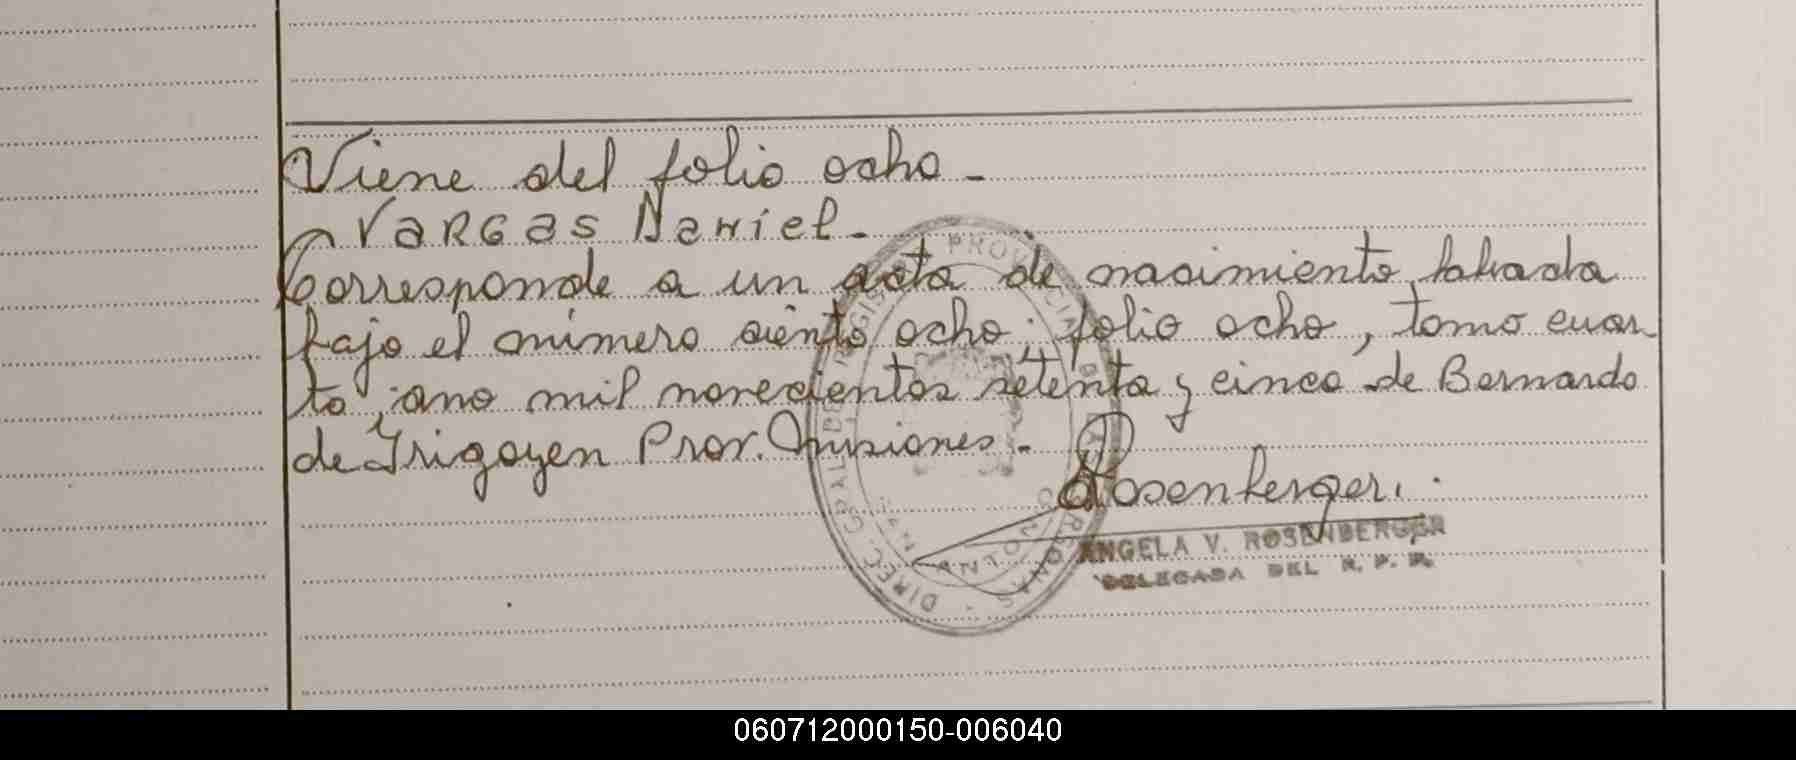 Viene del folio ocho -
VARGAS Daniel -
Corresponde a un acta de nacimiento, labrada
bajo el número siento ocho, folio ocho, tomo cuar-
to, ano mil novecientos setenta y cinco de Bernardo
de Irigoyen Prov. Misiones -
Rosenberger
ANGELA V. ROSENBERGER
DELEGADA DEL R. P. P.
DIREC. GRAL. DE REGISTRO PROVINCIAL DE LAS PERSONAS
060712000150-006040